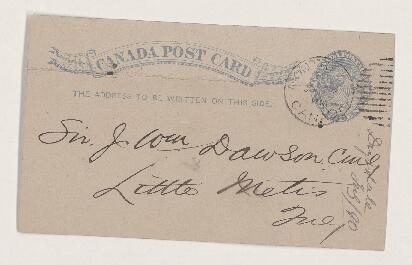 CANADA POST CARD
THE ADDRESS TO BE WRITTEN ON THIS SIDE.
Sir. J Wm Dawson. C.M.G
Little Metis
Que